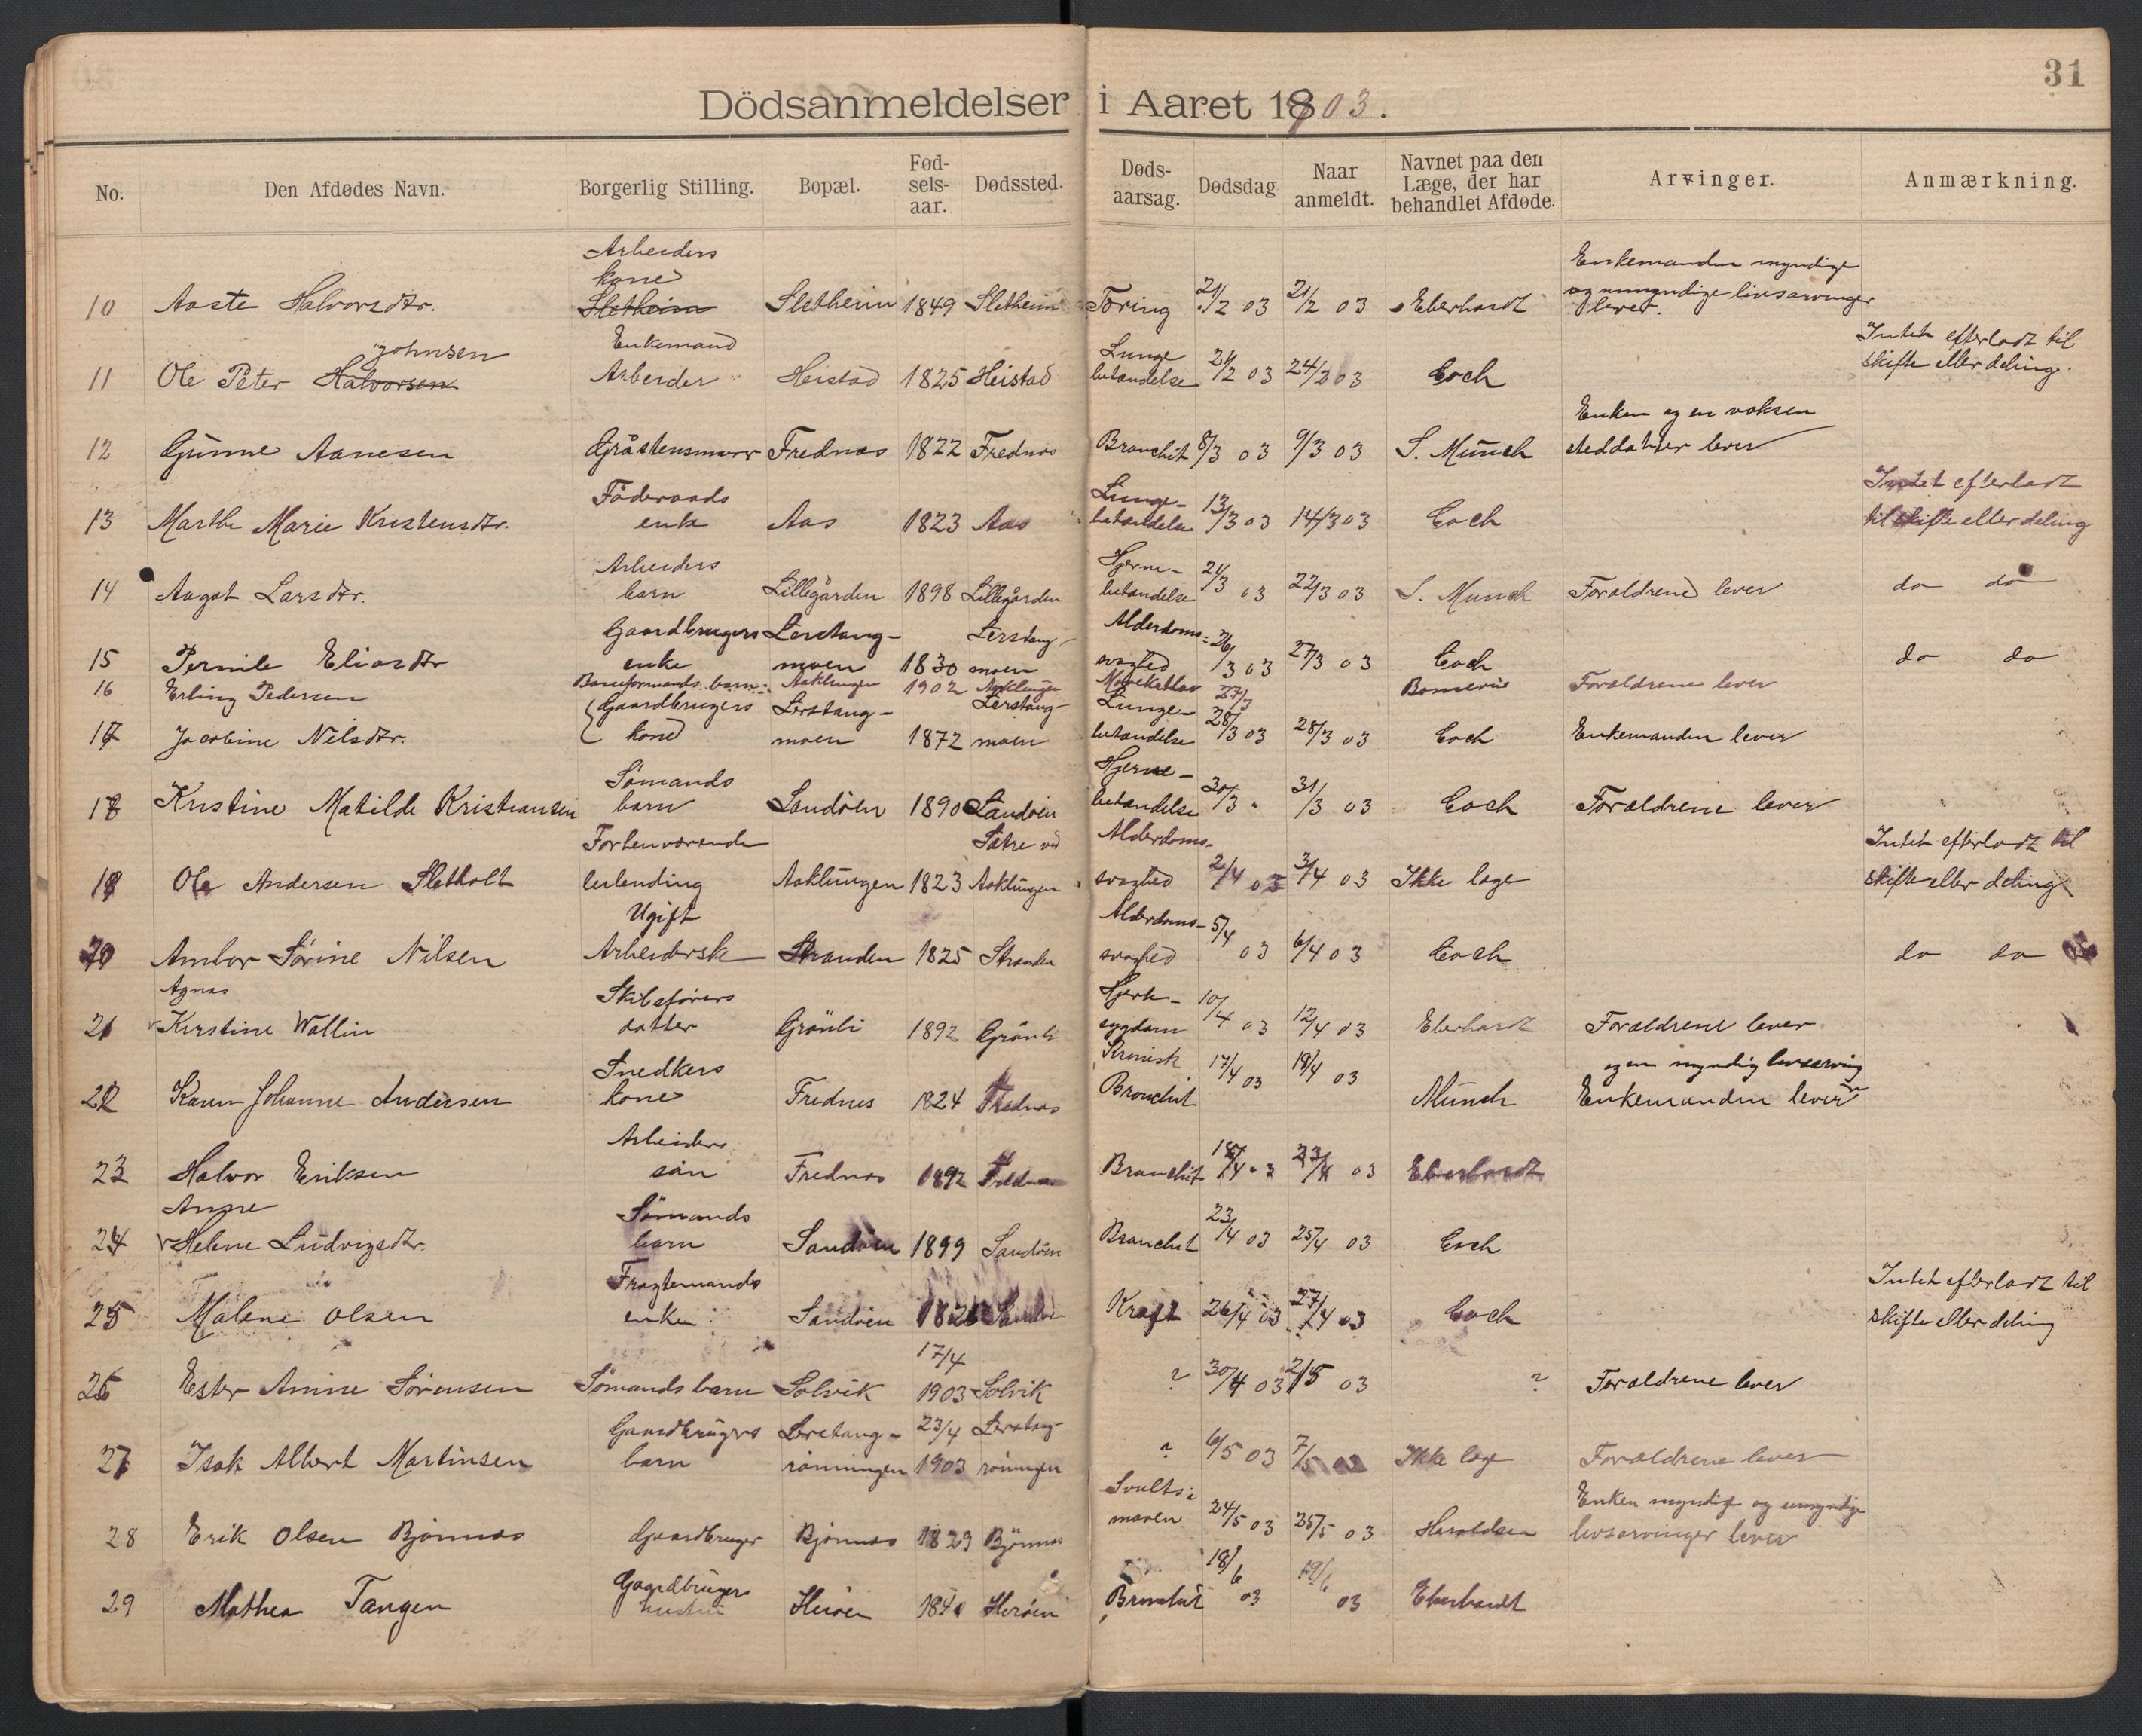 31
Dödsanmeldelser i Aaret 1903.
No. Den Afdødes Navn. Borgerlig Stilling. Bopæl. Fød-sels-aar. Dødssted. Døds-aarsag. Dødsdag Naar anmeldt. Navnet paa den Læge, der har behandlet Afdøde. Arvinger. Anmærkning.
Arbeiders Enkemanden myndige
kone og umyndige livsarvinger
10 Aaste Halvorsdtr. Sletheim Sletheim 1849 Sletheim Tæring 21/2 03 21/2 03 Eberhardt lever.
Johnsen Enkemand Lunge Intet efterladt til
11 Ole Peter Halvorsen Arbeider Heistad 1825 Heistad betændelse 21/2 03 24/2 03 Coch skifte eller deling.
Enken og en voksen
12 Gunne Aanesen Gråstensmurer Frednæs 1822 Frednæs Bronchit 8/3 03 9/3 03 S. Münch steddatter lever
Føderaads Lunge- Intet efterladt
13 Marthe Marie Kristensdtr. enke Aas 1823 Aas betændelse 13/3 03 14/3 03 Coch til skifte eller deling
Arbeiders Hjerne-
14 Aagot Larsdtr. barn Lillegården 1898 Lillegården betændelse 21/3 03 22/3 03 S. Munch Forældrene lever do do
Gaardbrugers Lerstang- Lerstang- Alderdoms-
15 Pernile Eliasdtr enke moen 1830 moen svaghed 26/3 03 27/3 03 Coch do do
16 Erling Pedersen Baneformands barn Aaklungen 1902 Aaklungen Mavekatar 27/3 Bonnevie Forældrene lever
Gaardbrugers Lerstang- Lerstang- Lunge-
17 Jacobine Nilsdtr. kone moen 1872 moen betændelse 28/3 03 28/3 03 Coch Enkemanden lever
Sömands Hjerne-
18 Kristine Matilde Kristiansen barn Sandöen 1890 Sandöen betændelse 30/3 31/3 03 Coch Forældrene lever
Forhenværende Sätre ved Alderdoms- Intet efterladt til
19 Ole Andersen Sletholt Aaklungen 1823 Aaklungen svaghed 2/4 03 3/4 03 Ikke læge skifte eller deling
Ugift Alderdoms-
20 Ambor Sörine Nilsen Arbeiderske Stranden 1825 Stranden svaghed 5/4 03 6/4 03 Coch do do
Agnes Skibsførers Hjerte-
21 Kirstine Wallin datter Grönli 1892 Grönli sygdom 10/4 03 12/4 03 Eberhardt Forældrene lever
Snedkers Kronisk og en myndig livsarving
22 Karen Johanne Andersen kone Frednes 1824 Frednæs Bronchit 17/4 03 18/4 03 Münch Enkemanden lever
Arbeiders
23 Halvor Eriksen sön Frednæs 1892 Frednæs Bronchit 18/4 03 23/4 03 Eberhardt
Anne Sömands
24 Helene Ludvigsdtr. barn Sandöen 1899 Sandöen Bronchit 23/4 03 25/4 03 Coch
Fragtemands Intet efterladt til
25 Malene Olsen enke Sandöen Sandöen Kræft 26/4 03 27/4 03 Coch skifte eller deling
17/4
26 Ester Amine Sörensen Sömands barn Solvik 1903 Solvik ? 30/4 03 2/5 03 ? Forældrene lever
Gaardbrugers Lerstang- 23/4 Lerstang-
27 Isak Albert Martinsen barn rönningen 1903 röningen ? 6/5 03 7/5 Ikke læge Forældrene lever
Svulst i Enken myndige og umyndige
28 Erik Olsen Bjönnæs Gaardbruger Bjönnæs 1829 Bjönnæs maven 24/5 03 25/5 03 Haraldsen livsarvinger lever
Gaardbrugers
29 Mathea Tangen hustru Heröen 1840 Heröen Bronchit 18/6 03 19/6 03 Eberhardt